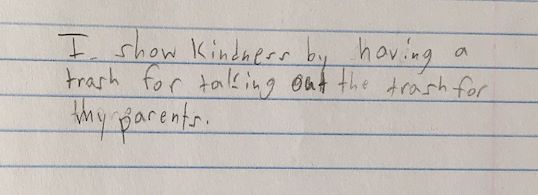 I show Kindness by having a
trash for taking out the trash for
my parents.